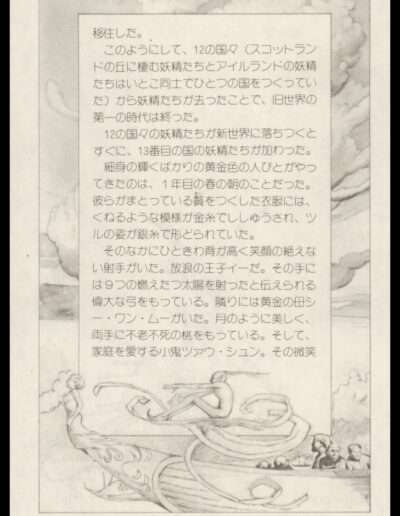 移住した。
このようにして、12の国々（スコットラン
ドの丘に棲む妖精たちとアイルランドの妖精
たちはいとこ同士でひとつの国をつくってい
た）から妖精たちが去ったことで、旧世界の
第一の時代は終った。
12の国々の妖精たちが新世界に落ちつくと
すぐに、13番目の国の妖精たちが加わった。
細身の輝くばかりの黄金色の人びとがやっ
てきたのは、１年目の春の朝のことだった。
彼らがまとっている贅をつくした衣服には、
くねるような模様が金糸でししゅうされ、ツ
ルの姿が銀糸で形どられていた。
そのなかにひときわ背が高く笑顔の絶えな
い射手がいた。放浪の王子イーだ。その手に
は９つの燃えたつ太陽を射ったと伝えられる
偉大な弓をもっている。隣りには黄金の母シ
ー・ワン・ムーがいた。月のように美しく、
両手に不老不死の桃をもっている。そして、
家庭を愛する小鬼ツァウ・シュン。その微笑